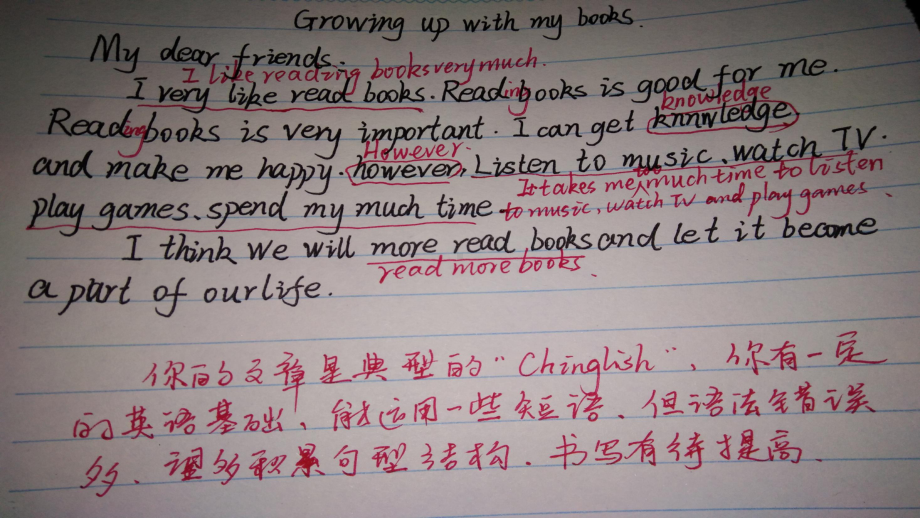 Growing up with my books.
My dear friends.
I like reading books very much.
I very like read books. Reading books is good for me.
knowledge
Reading books is very important. I can get knnwledge
However.
and make me happy. however, Listen to music、watch TV.
It takes me much time to listen
play games、spend my much time
to music, watch TV and play games.
I think we will more read books and let it become
read more books.
a part of our life.
你的文章是典型的“Chinglish”、你有一定
的英语基础、能运用一些短语、但语法错误
多、望多积累句型结构、书写有待提高.